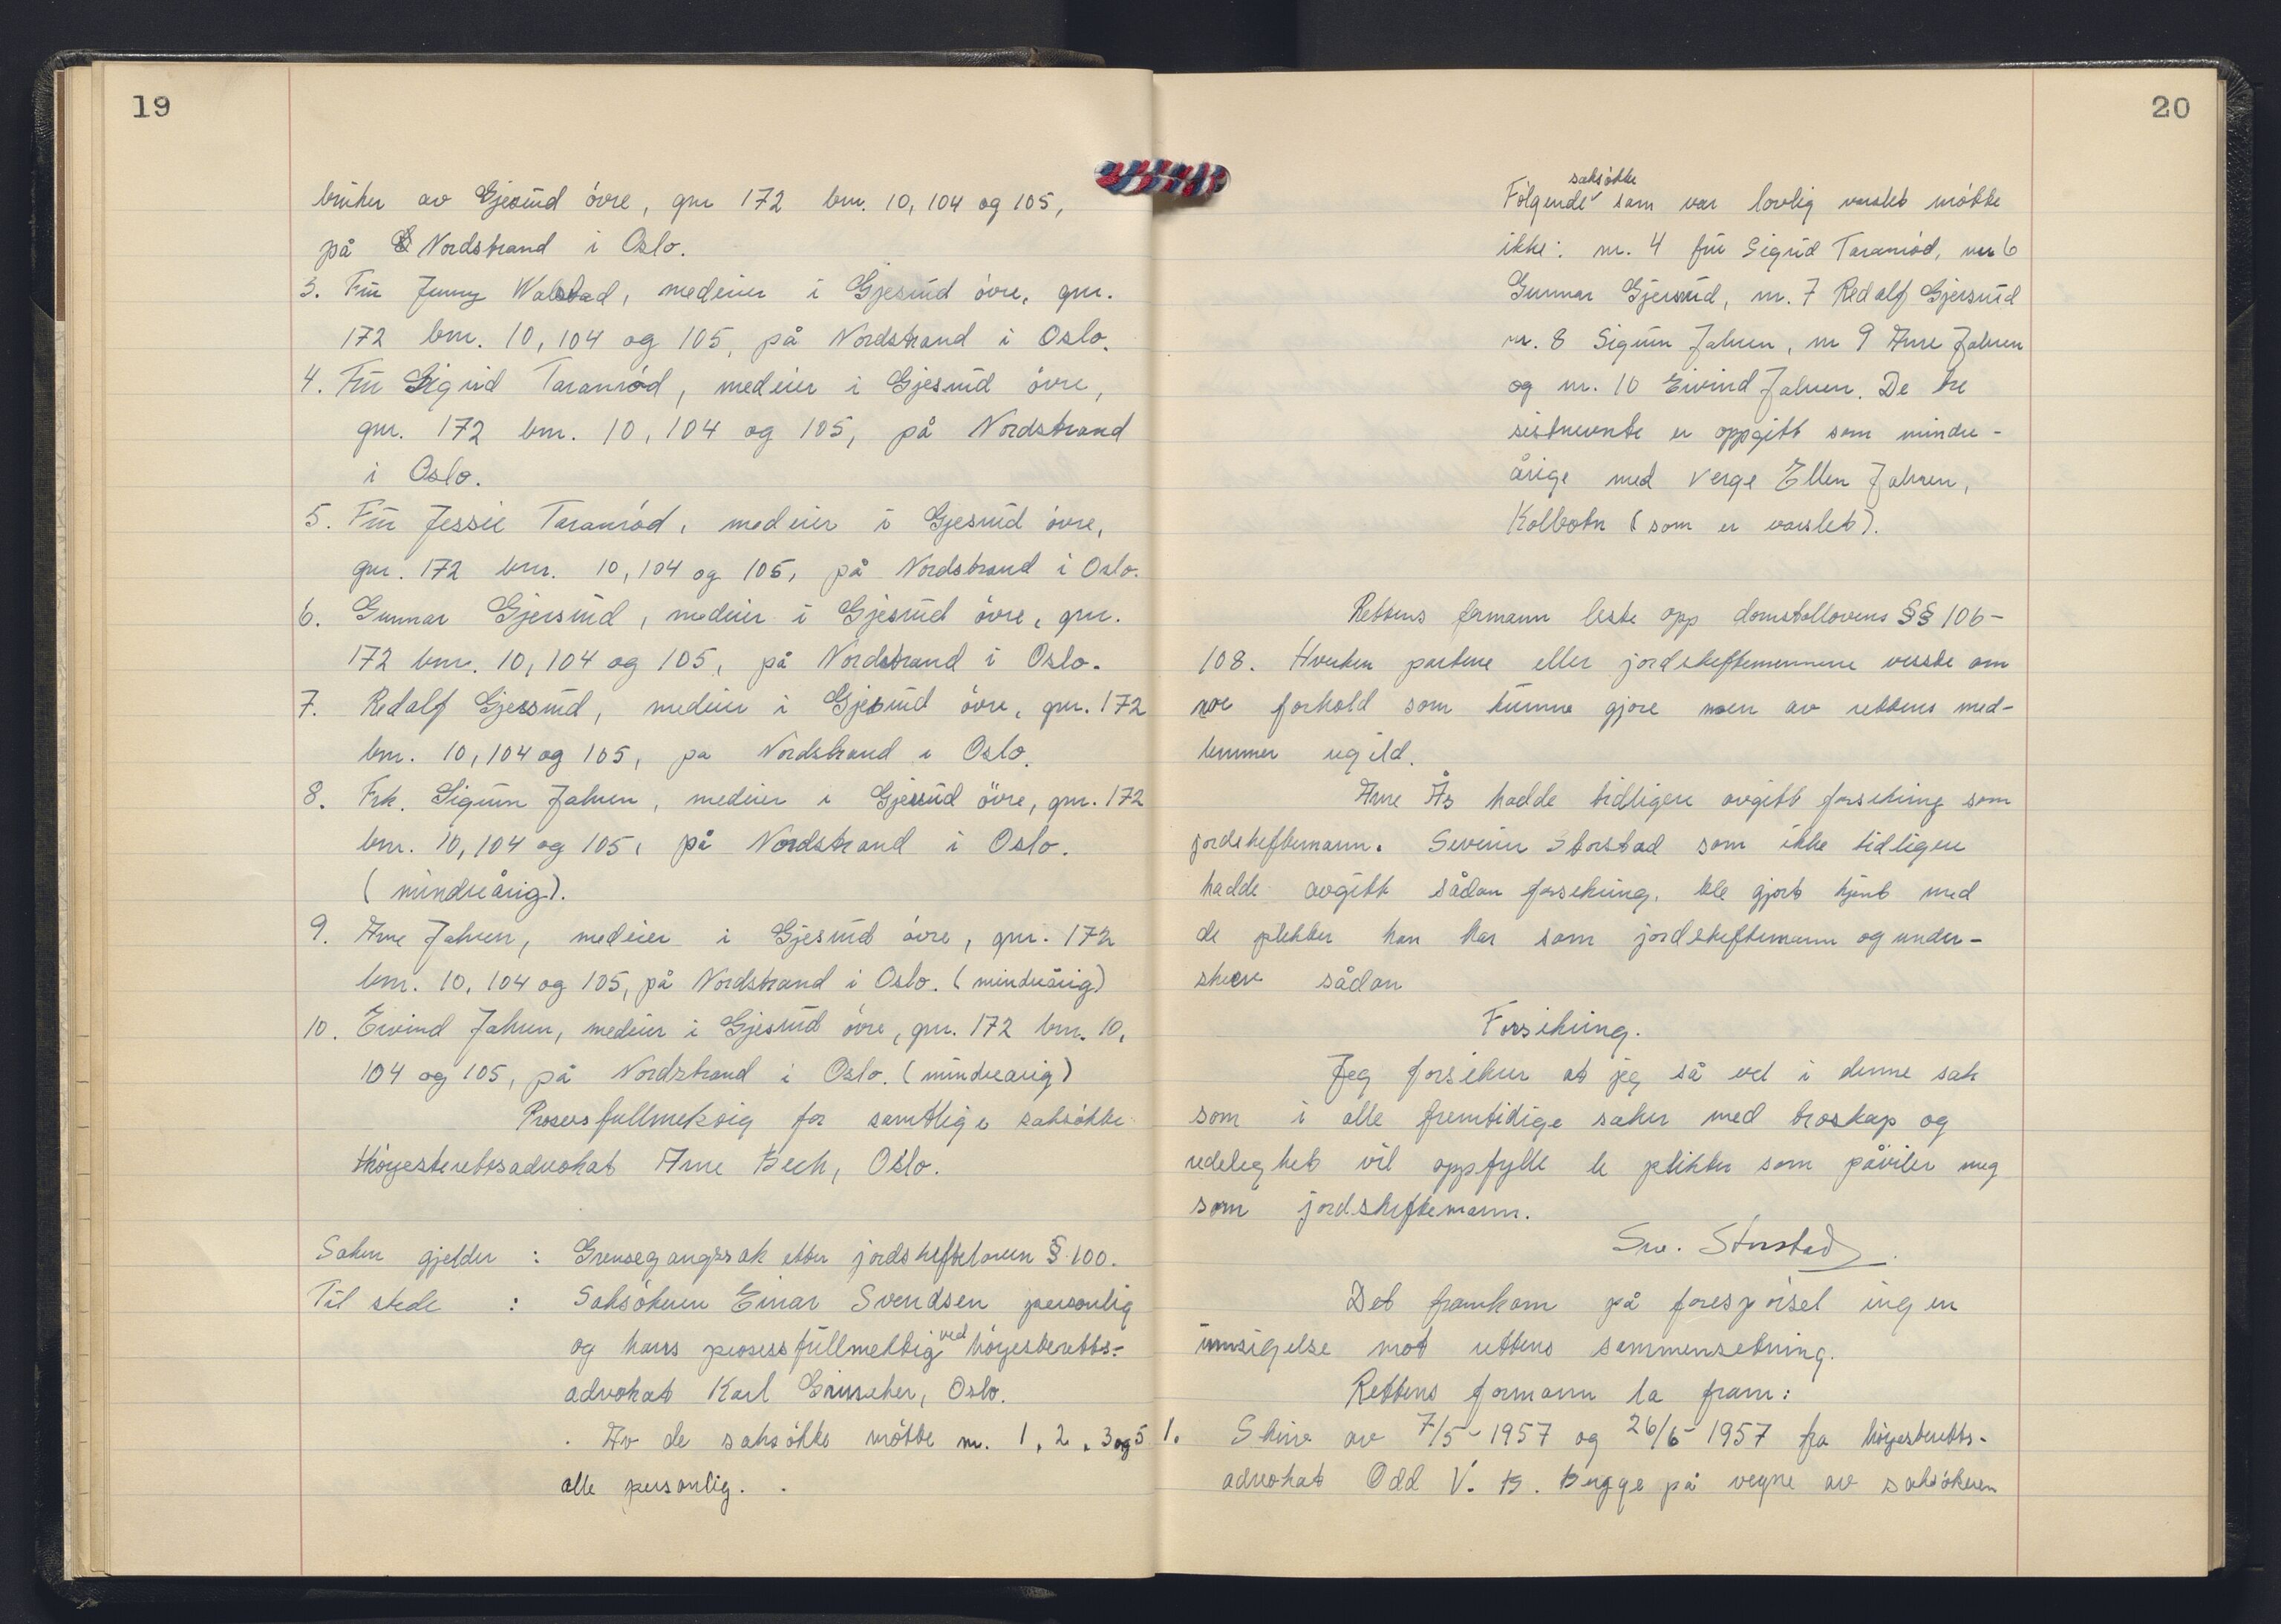 19
bruker av Gjersrud övre, gnr 172 bnr. 10, 104 og 105,
på Nordstrand i Oslo.
3. Fru Jenny Walstad, medeier i Gjesrud övre, gnr.
172 bnr. 10, 104 og 105, på Nordstrand i Oslo.
4. Fru Sigrid Taranröd, medeier i Gjesrud övre,
gnr. 172 bnr. 10, 104 og 105, på Nordstrand
i Oslo.
5. Fru Jessie Taranröd, medeier i Gjesrud övre,
gnr. 172 bnr. 10, 104 og 105, på Nordstrand i Oslo.
6. Gunnar Gjersrud, medeier i Gjesrud övre, gnr.
172 bnr. 10, 104 og 105, på Nordstrand i Oslo.
7. Redalf Gjersrud, medeier i Gjesrud övre, gnr. 172
bnr. 10, 104 og 105, på Nordstrand i Oslo.
8. Frk. Sigrun Jahren, medeier i Gjesrud övre, gnr. 172
bnr. 10, 104 og 105, på Nordstrand i Oslo.
(mindreårig).
9. Arne Jahren, medeier i Gjesrud övre, gnr. 172
bnr. 10, 104 og 105, på Nordstrand i Oslo. (mindreårig)
10. Eivind Jahren, medeier i Gjesrud övre, gnr. 172 bnr. 10,
104 og 105, på Nordstrand i Oslo. (mindreårig)
Prosessfullmektig for samtlige saksökte
Höyesterettsadvokat Arne Bech, Oslo.
Saken gjelder : Grensegangssak etter jordskifteloven § 100.
Til stede : Saksökeren Einar Svendsen personlig
og hans prosessfullmektig ved höyesteretts-
advokat Karl Oslo.
Av de saksökte mötte nr. 1, 2, 3 og 5
alle personlig.
20
Fölgende saksökte som var lovlig varslet mötte
ikke: nr. 4 fru Sigrid Taranröd, nr 6
Gunnar Gjersrud, nr. 7 Redalf Gjersrud
nr. 8 Sigrun Jahren, nr 9 Arne Jahren
og nr. 10 Eivind Jahren. De tre
sistnevnte er oppgitt som mindre-
årige med verge Ellen Jahren,
Kolbotn (som er varslet).
Rettens formann leste opp domstollovens §§ 106-
108. Hverken partene eller jordskiftemennene visste om
noe forhold som kunne gjöre noen av rettens med-
lemmer ugild.
Arne Ås hadde tidligere avgitt forsikring som
jordskiftemann. Severin Storstad som ikke tidligere
hadde avgitt sådan forsikring, ble gjort kjent med
de plikter han har som jordskiftemann og under-
skrev sådan
Forsikring.
Jeg forsikrer at jeg så vel i denne sak
som i alle fremtidige saker med troskap og
redelighet vil oppfylle de plikter som påviler meg
som jordskiftemann.
Sev. Storstad.
Det framkom på forespörsel ingen
innsigelse mot rettens sammensetning.
Rettens formann la fram:
1. Skriv av 7/5-1957 og 26/6-1957 fra höyesteretts-
advokat Odd V. B. Bugge på vegne av saksökeren